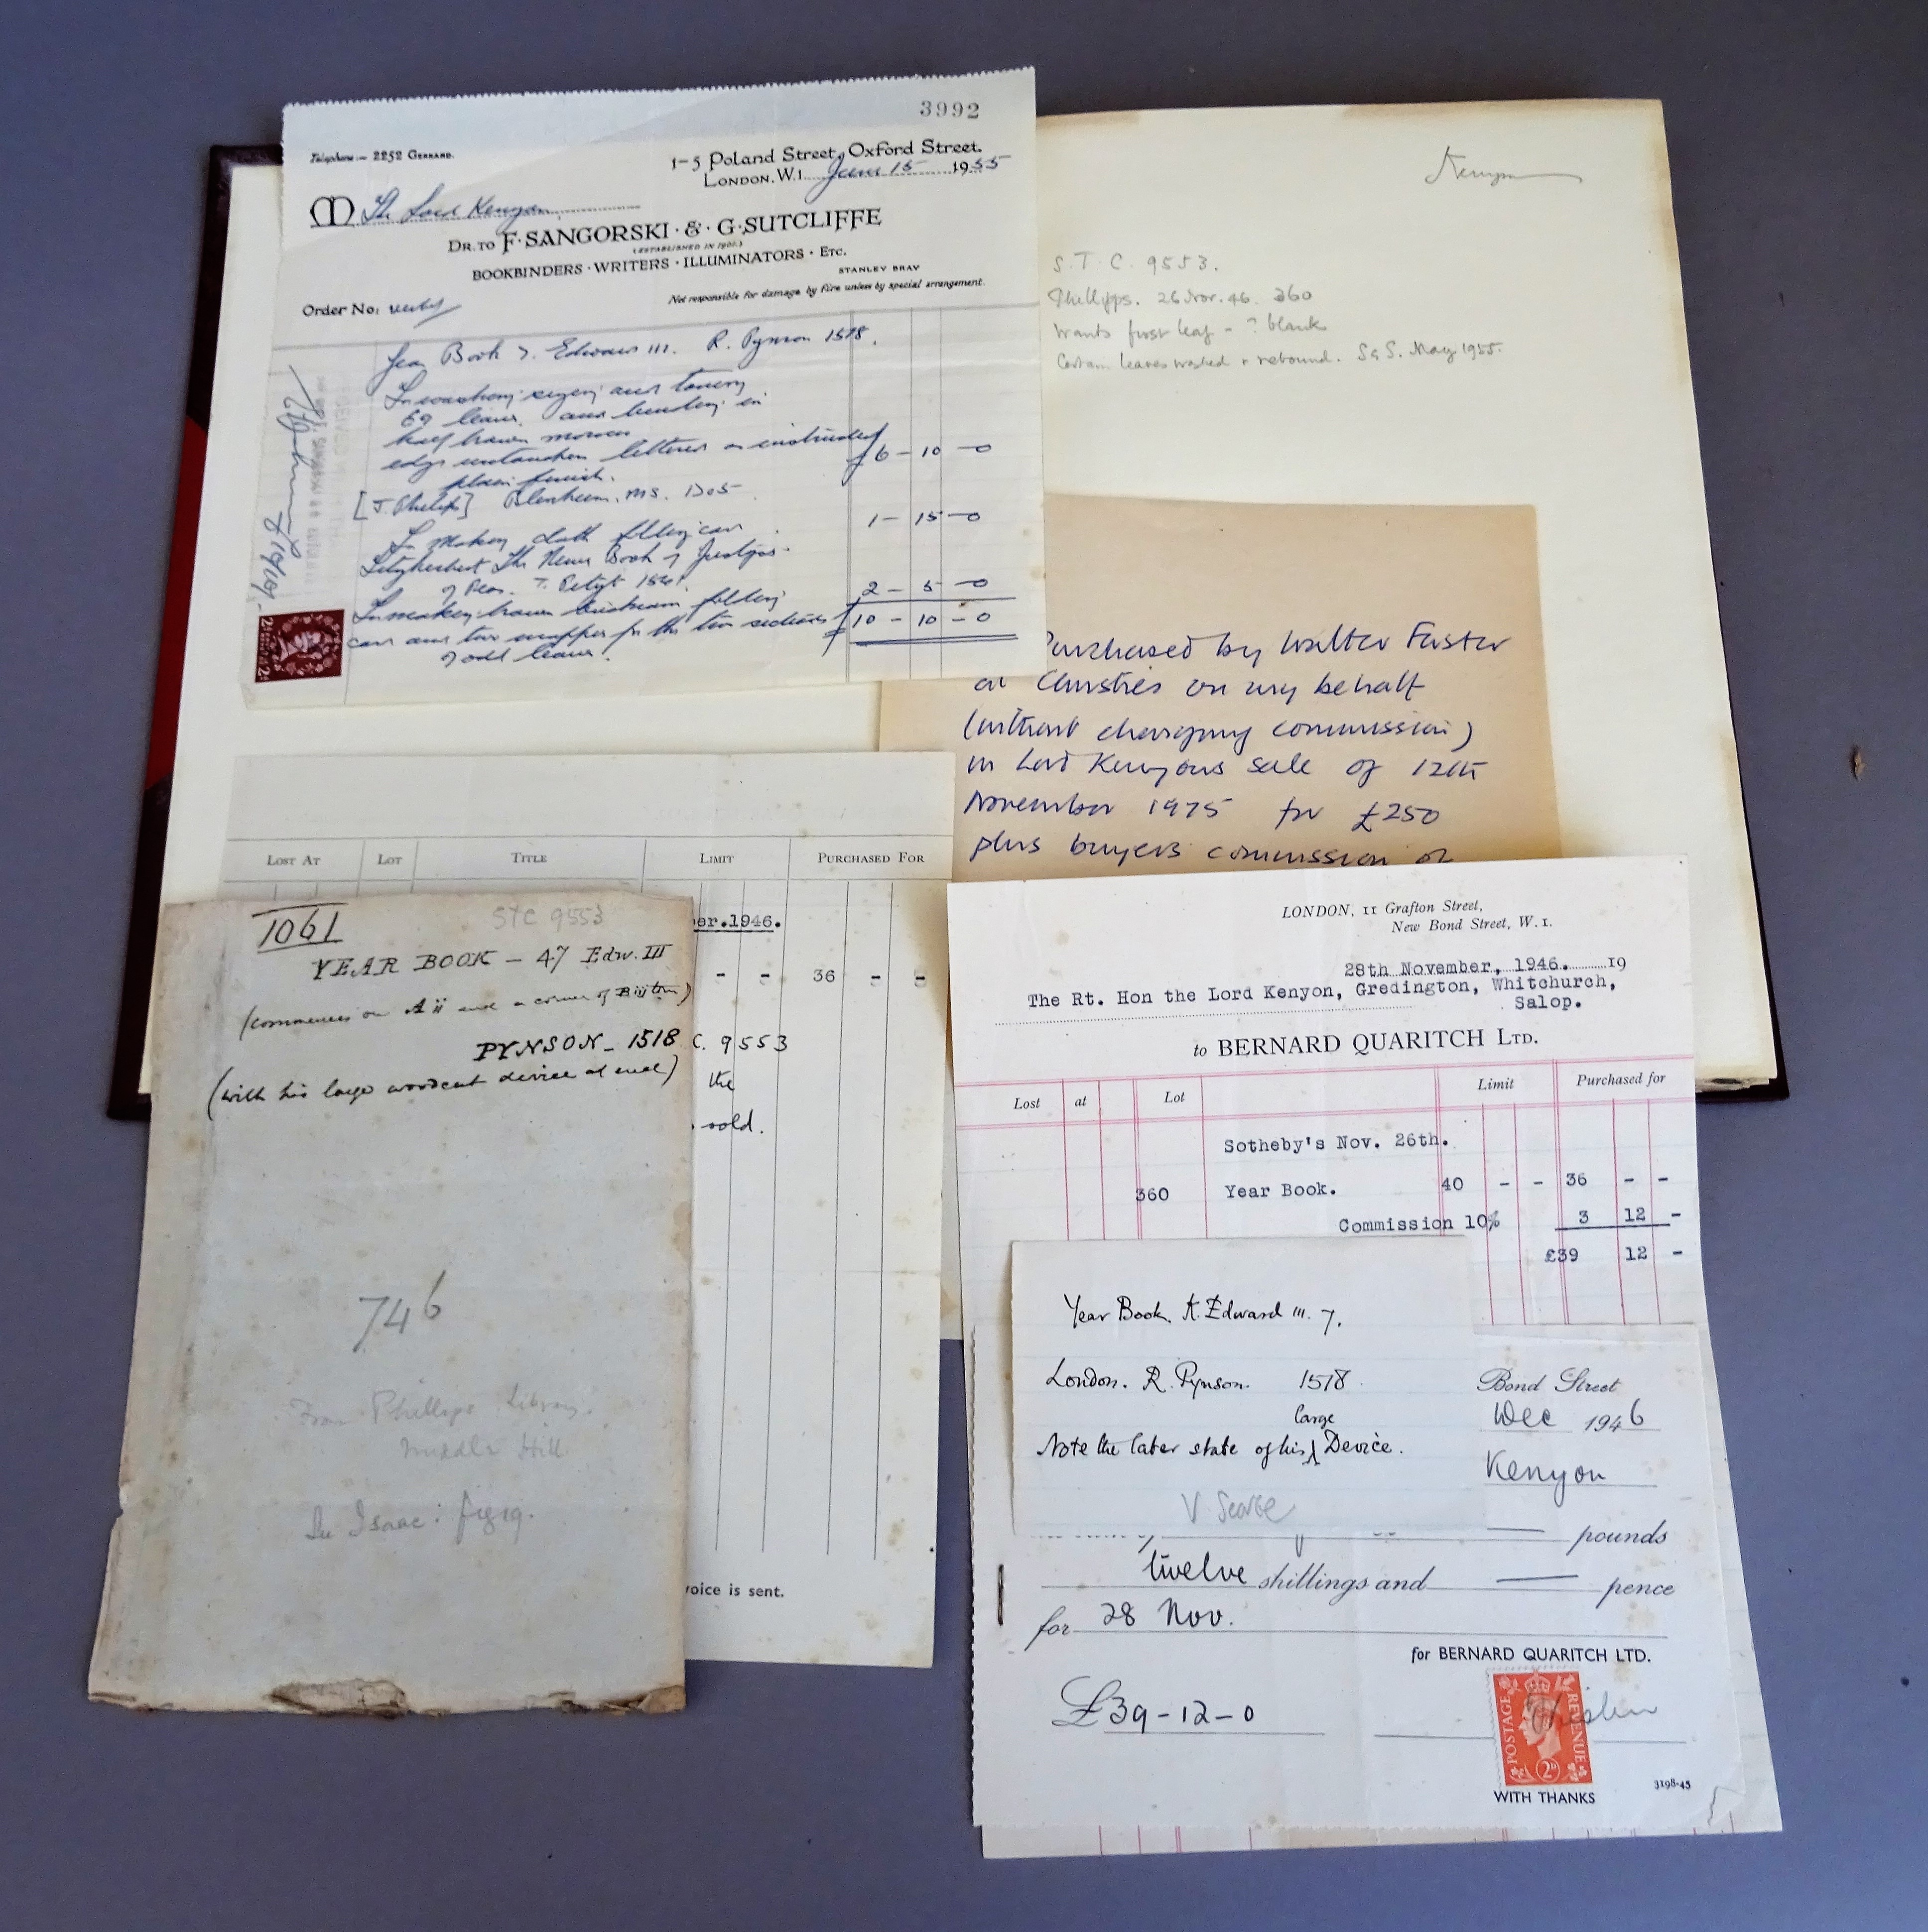 3992
Telephone :- 2252 GERRARD.
1-5 Poland Street, Oxford Street.
LONDON, W.1. June 15 1955
M The Lord Kenyon
DR. TO F. SANGORSKI & G. SUTCLIFFE
(ESTABLISHED IN 1901.)
BOOKBINDERS · WRITERS · ILLUMINATORS · ETC.
STANLEY BRAY
Not responsible for damage by fire unless by special arrangement.
Order No:
Year Book 7. Edward III. R. Pynson 1518.
To washing sizing and toning
69 leaves and binding in
half brown morocco
edges untouched lettered as instructed
plain finish.
£6 - 10 - 0
[J. Philips] Blenheim. MS. 1705
To making cloth filling case
1 - 15 - 0
Fitzherbert The Newe Book of Justyces
of Peas. T. Petyt 1541
2 - 5 - 0
To making brown buckram folding
case and two wrappers for the two sections
of odd leaves.
£10 - 10 - 0
Kenyon
S.T.C. 9553.
Phillipps. 26 Nov. 46. 360
Wants first leaf - ? blank
Certain leaves washed & rebound. S & S. May 1955.
Purchased by Walter Foster
at Christies on my behalf
(without charging commission)
in Lord Kenyons sale of 12th
November 1975 for £250
plus buyers commission of
LOST AT LOT TITLE LIMIT PURCHASED FOR
er.1946.
- - 36 - -
C. 9553
the
sold.
voice is sent.
1061
STC 9553
YEAR BOOK - 47 Edw. III
(commences on A ii and a corner of
PYNSON - 1518
(with his large woodcut device at end)
746
From Phillipps Library.
Middle Hill
In Isaac: fig 19.
LONDON, 11 Grafton Street,
New Bond Street, W.1.
28th November, 1946. 19
The Rt. Hon the Lord Kenyon, Gredington, Whitchurch,
Salop.
to BERNARD QUARITCH LTD.
Lost at Lot Limit Purchased for
Sotheby's Nov. 26th.
360 Year Book. 40 - - 36 - -
Commission 10% 3 12 -
£39 12 -
Year Book. K. Edward III. 7.
London. R. Pynson. 1518.
large
Note the later state of his Device.
V Scarce
Bond Street
Dec 1946
Kenyon
pounds
twelve shillings and pence
for 28 Nov.
for BERNARD QUARITCH LTD.
£39-12-0
POSTAGE REVENUE
2D
WITH THANKS
3198-45